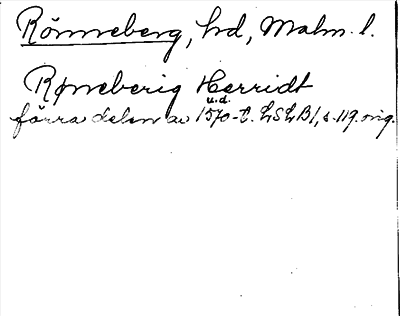 Rönneberg, hd, Malm. l.
Røneberig Herridt
u.d.
förra delen av 1570-t. LSLB1, s. 119. orig.